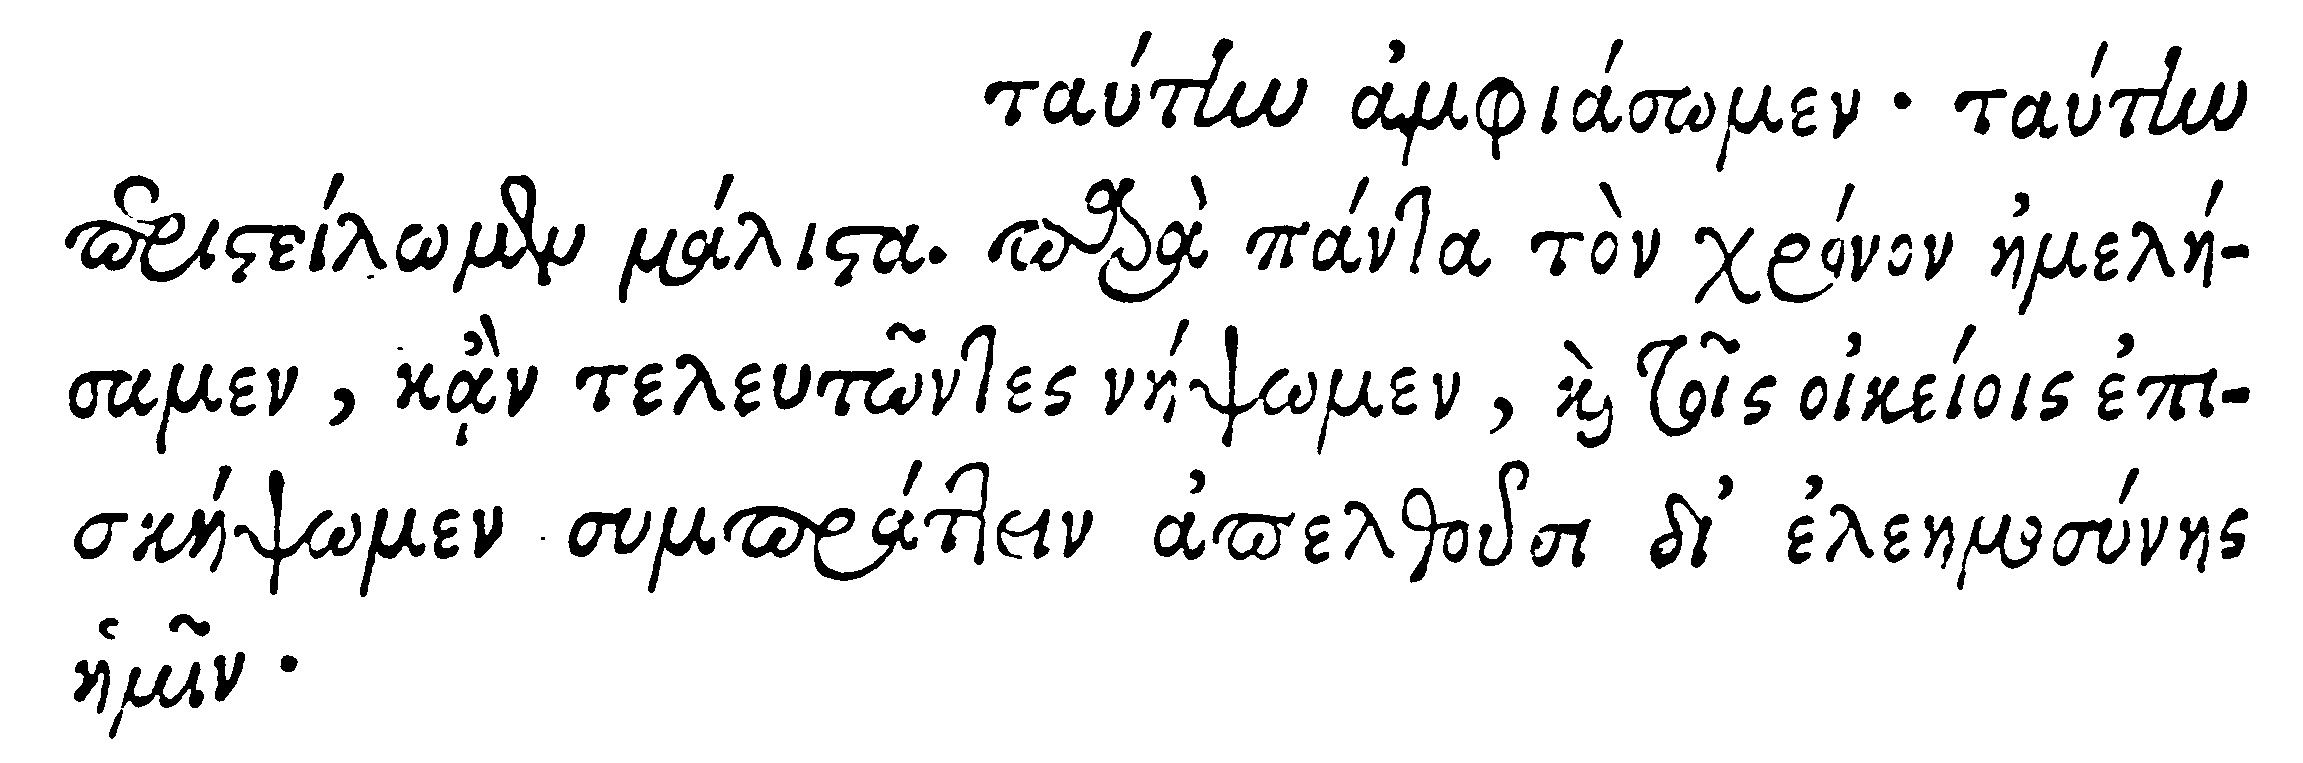 ταύτην ἀμφιάσωμεν· ταύτην
περιστείλωμεν μάλιστα. παρὰ πάντα τὸν χρόνον ἠμελή-
σαμεν, κᾂν τελευτῶντες νήψωμεν, καὶ τοῖς οἰκείοις ἐπι-
σκήψωμεν συμπράττειν ἀπελθοῦσι δι᾽ ἐλεημοσύνης
ἡμῖν·